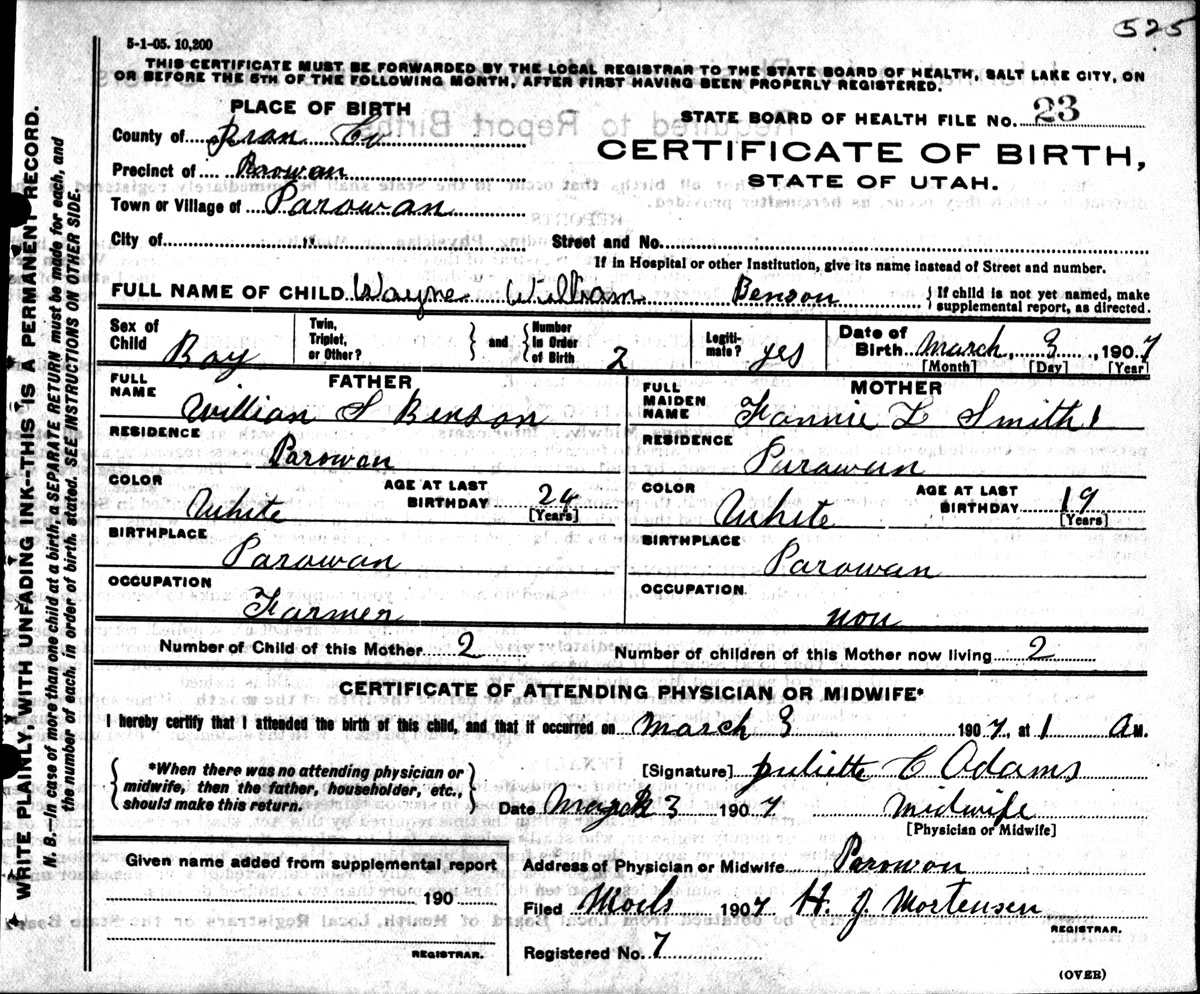 525
5-1-05. 10,200
THIS CERTIFICATE MUST BE FORWARDED BY THE LOCAL REGISTRAR TO THE STATE BOARD OF HEALTH, SALT LAKE CITY, ON
OR BEFORE THE 5TH OF THE FOLLOWING MONTH, AFTER FIRST HAVING BEEN PROPERLY REGISTERED.
WRITE PLAINLY WITH UNFADING INK--THIS IS A PERMANENT RECORD.
N. B.--In case of more than one child at a birth, a SEPARATE RETURN must be made for each, and
the number of each, in order of birth, stated. SEE INSTRUCTIONS ON OTHER SIDE.
PLACE OF BIRTH
County of Iran Co
Precinct of Parowan
Town or Village of Parowan
City of "
STATE BOARD OF HEALTH FILE NO. 23
CERTIFICATE OF BIRTH,
STATE OF UTAH.
Street and No.
If in Hospital or other Institution, give its name instead of Street and number.
FULL NAME OF CHILD Wayne William Benson { If child is not yet named, make
supplemental report, as directed.
Sex of Child Boy
Twin, Triplet, or Other? } and { Number in Order of Birth 2
Legitimate? yes
Date of Birth March 3, 1907
[Month] [Day] [Year]
FATHER
FULL NAME
Willian S Benson
RESIDENCE
Parowan
COLOR White AGE AT LAST BIRTHDAY 24 [Years]
BIRTHPLACE
Parowan
OCCUPATION
Farmer
MOTHER
FULL MAIDEN NAME
Fannie L Smith
RESIDENCE
Parawan
COLOR White AGE AT LAST BIRTHDAY 19 [Years]
BIRTHPLACE
Parowan
OCCUPATION
non
Number of Child of this Mother 2 Number of children of this Mother now living 2
CERTIFICATE OF ATTENDING PHYSICIAN OR MIDWIFE*
I hereby certify that I attended the birth of this child, and that it occurred on March 3 1907, at 1 A M.
{ *When there was no attending physician or
midwife, then the father, householder, etc.,
should make this return. }
[Signature] Juliette C Adams
Date March 3 1907 Midwife
[Physician or Midwife]
Given name added from supplemental report
190
REGISTRAR.
Address of Physician or Midwife Parowan
Filed 1907 H. J. Mortensen
REGISTRAR.
Registered No. 7
(OVER)